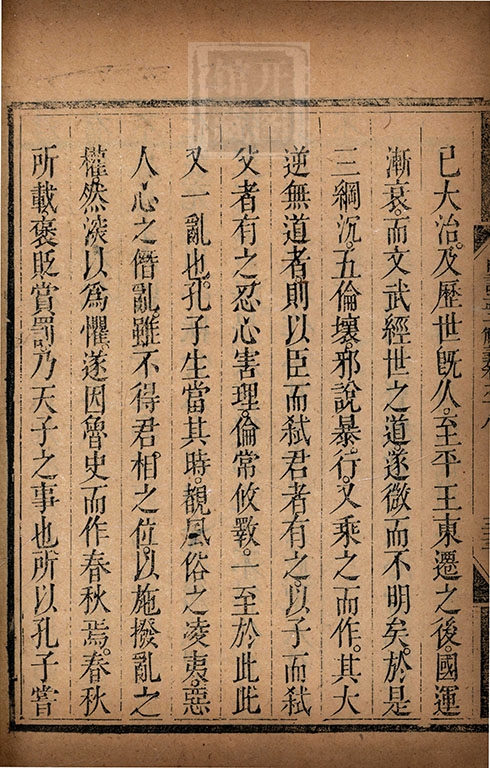 已大治。及歷世既久。至平王東遷之後。國運
漸衰。而文武經世之道遂微而不明矣。於是
三綱沉。五倫壞。邪說暴行。又乘之而作。其大
逆無道者。則以臣而弒君者有之。以子而弒
父者有之。忍心害理。倫常攸斁。一至於此。此
又一亂也。孔子生當其時。覩風俗之凌夷。惡
人心之僭亂。雖不得君相之位。以施撥亂之
權。然深以為懼。遂因魯史而作春秋焉。春秋
所載褒貶賞罰。乃天子之事也。所以孔子嘗